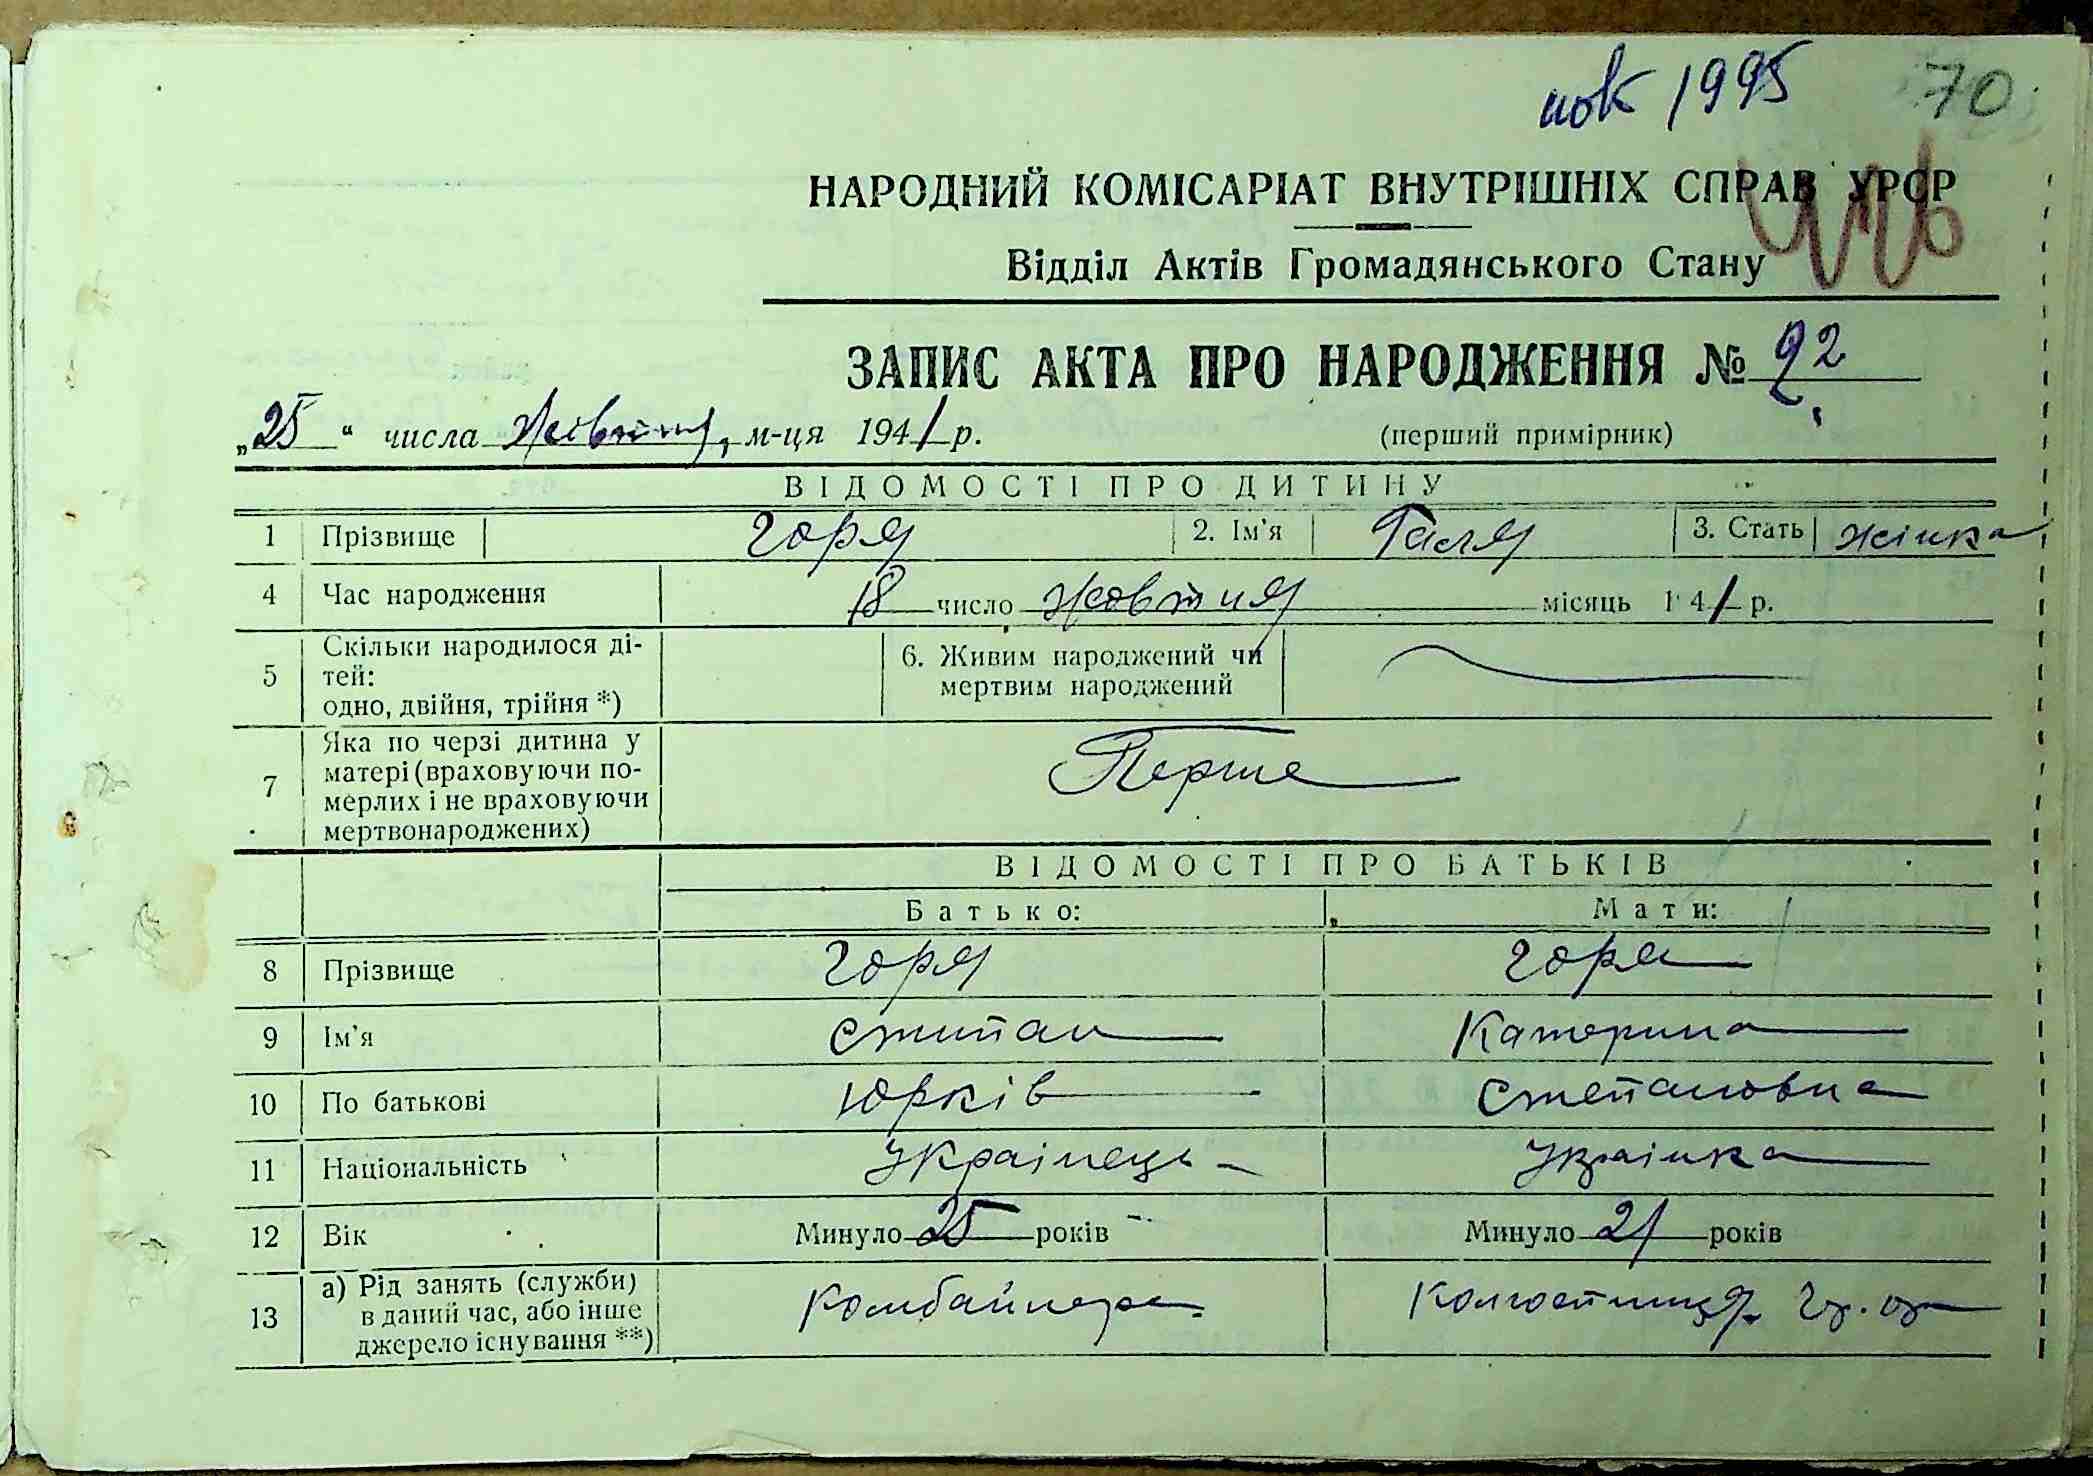 1995 70
НАРОДНИЙ КОМІСАРІАТ ВНУТРІШНІХ СПРАВ УРСР
Відділ Актів Громадянського Стану
ЗАПИС АКТА ПРО НАРОДЖЕННЯ № 92
„25“ числа Жовтня, м-ця 1941 р. (перший примірник)
ВІДОМОСТІ ПРО ДИТИНУ
1 Прізвище Горя 2. Ім'я Галя 3. Стать жінка
4 Час народження 18 число жовтня місяць 1 41 р.
5 Скільки народилося ді-
тей:
одно, двійня, трійня *)
6. Живим народжений чи
мертвим народжений
7 Яка по черзі дитина у
матері (враховуючи по-
мерлих і не враховуючи
мертвонароджених)
Перше
ВІДОМОСТІ ПРО БАТЬКІВ
Батько: Мати:
8 Прізвище Горя Горя
9 Ім'я Степан Катерина
10 По батькові Юрків Степановна
11 Національність Українець Українка
12 Вік Минуло 25 років Минуло 21 років
13 а) Рід занять (служби)
в даний час, або інше
джерело існування **)
Комбайнер Колгоспниця